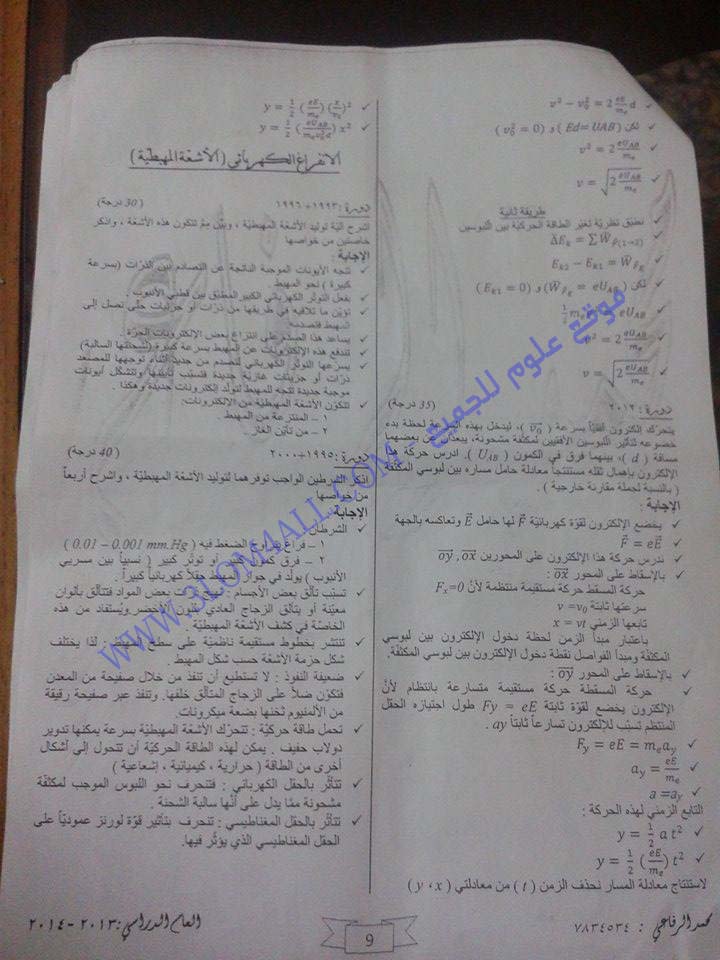 ✓ $v^2 - v_0^2 = 2\frac{eE}{m_e}d$
✓ لكن (Ed= UAB) و ($v_0^2 = 0$)
✓ $v^2 = 2\frac{eU_{AB}}{m_e}$
✓ $v = \sqrt{2\frac{eU_{AB}}{m_e}}$
طريقة ثانية
✓ نطبق نظرية تغير الطاقة الحركية بين اللبوسين
✓ $\bar{\Delta}E_k = \sum \bar{W}_{F(1→2)}$
✓ $E_{k2} - E_{k1} = \bar{W}_{F_E}$
✓ لكن ($\bar{W}_{F_E} = eU_{AB}$) و ($E_{k1} = 0$)
$eU_{AB}$
✓ $v^2 = 2\frac{eU_{AB}}{m_e}$
✓ $v = \sqrt{2\frac{eU_{AB}}{m_e}}$
دورة : ٢٠١٢ (35 درجة)
يتحرك إلكترون أفقياً بسرعة ($\vec{v_0}$)، ليدخل بهذه السرعة لحظة بدء
خضوعه لتأثير اللبوسين الأفقيين لمكثفة مشحونة، يبعدان عن بعضهما
مسافة ( d )، بينهما فرق في الكمون ($U_{AB}$). ادرس حركة هذا
الإلكترون بإهمال ثقله مستنتجاً معادلة حامل مساره بين لبوسي المكثفة
( بالنسبة لجملة مقارنة خارجية ) .
الإجابة :
✓ يخضع الإلكترون لقوة كهربائية $\vec{F}$ لها حامل $\vec{E}$ وتعاكسه بالجهة
✓ $\vec{F} = e\vec{E}$
✓ ندرس حركة هذا الإلكترون على المحورين $\vec{oy}$ , $\vec{ox}$
✓ بالإسقاط على المحور $\vec{ox}$ :
حركة المسقط حركة مستقيمة منتظمة لأن $F_x$=0
سرعتها ثابتة v =$v_0$
تابعها الزمني x = vt
باعتبار مبدأ الزمن لحظة دخول الإلكترون بين لبوسي
المكثفة ومبدأ الفواصل نقطة دخول الإلكترون بين لبوسي المكثفة.
✓ بالإسقاط على المحور $\vec{oy}$ :
✓ حركة المسقطة حركة مستقيمة متسارعة بانتظام لأن
الإلكترون يخضع لقوة ثابتة Fy = eE طول اجتيازه الحقل
المنتظم تسبب للإلكترون تسارعاً ثابتاً ay .
✓ $F_y = eE = m_e a_y$
✓ $a_y = \frac{eE}{m_e}$
✓ a =$a_y$
التابع الزمني لهذه الحركة :
✓ $y = \frac{1}{2} a t^2$
✓ $y = \frac{1}{2} (\frac{eE}{m_e}) t^2$
لاستنتاج معادلة المسار نحذف الزمن ( t ) من معادلتي ( y ، x )
✓ $y = \frac{1}{2} (\frac{eE}{m_e}) (\frac{x}{v_0})^2$
✓ $y = \frac{1}{2} (\frac{eU_{AB}}{m_e v_0^2 d}) x^2$
الانفراغ الكهربائي (الأشعة المهبطية)
دورة : ١٩٩٣+١٩٩٦ (30 درجة)
اشرح آلية توليد الأشعة المهبطية، وبيّن مم تتكون هذه الأشعة ، واذكر
خاصتين من خواصها
الإجابة :
✓ تتجه الأيونات الموجبة الناتجة عن التصادم بين الذرات (بسرعة
كبيرة ) نحو المهبط .
✓ بفعل التوتر الكهربائي الكبير المطبق بين قطبي الأنبوب .
✓ تؤين ما تلاقيه في طريقها من ذرات أو جزيئات حتى تصل إلى
المهبط فتصدمه.
✓ يساعد هذا الصدم على انتزاع بعض الإلكترونات الحرة .
✓ تندفع هذه الإلكترونات عن المهبط بسرعة كبيرة (لشحنتها السالبة)
✓ يسرعها التوتر الكهربائي لتصدم من جديد أثناء توجهها للمصعد
ذرات أو جزيئات غازية جديدة فتسبب تأينها وتتشكل أيونات
موجبة جديدة تتجه للمهبط لتولد إلكترونات جديدة وهكذا .
✓ تتكون الأشعة المهبطية من الإلكترونات:
١ – المنتزعة من المهبط
٢ – من تأين الغاز.
دورة : ١٩٩٥+٢٠٠٠ (40 درجة)
اذكر الشرطين الواجب توفرهما لتوليد الأشعة المهبطية، واشرح أربعاً
من خواصها
الإجابة :
✓ الشرطان :
١ – فراغ يتراوح الضغط فيه ( 0.01 – 0.001 mm.Hg )
٢ – فرق كمون كبير أو توتر كبير ( نسبياً بين مسربي
الأنبوب ) يولد في جوار المهبط حقلاً كهربائياً كبيراً .
✓ تسبب تألق بعض الأجسام : تهيج ذرات بعض المواد فتتألق بألوان
معينة أو يتألق الزجاج العادي بلون أخضر ويُستفاد من هذه
الخاصة في كشف الأشعة المهبطية .
✓ تنتشر بخطوط مستقيمة ناظمية على سطح المهبط: لذا يختلف
شكل حزمة الأشعة حسب شكل المهبط .
✓ ضعيفة النفوذ : لا تستطيع أن تنفذ من خلال صفيحة من المعدن
فتكون ضلاً على الزجاج المتألق خلفها. وتنفذ عبر صفيحة رقيقة
من الألمنيوم ثخنها بضعة ميكرونات.
✓ تحمل طاقة حركية : تتحرك الأشعة المهبطية بسرعة يمكنها تدوير
دولاب خفيف . يمكن لهذه الطاقة الحركية أن تتحول إلى أشكال
أخرى من الطاقة ( حرارية ، كيميائية ، إشعاعية )
✓ تتأثر بالحقل الكهربائي : فتنحرف نحو اللبوس الموجب لمكثفة
مشحونة مما يدل على أنها سالبة الشحنة .
✓ تتأثر بالحقل المغناطيسي : تنحرف بتأثير قوة لورنز عمودياً على
الحقل المغناطيسي الذي يؤثر فيها.
محمد الرفاعي : ٧٨٣٤٥٣٤
9
العام الدراسي: ٢٠١٣ - ٢٠١٤
موقع علوم للجميع - WWW.3LOM4ALL.COM